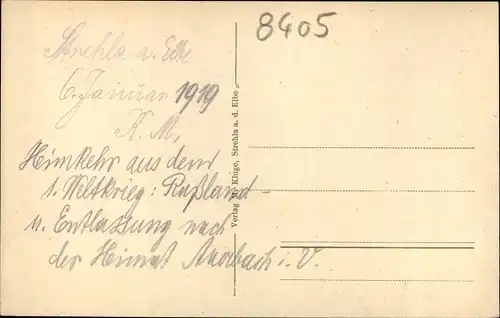 8405
Strehla a. Elbe
6. Januar 1919
K. M.
Heimkehr aus dem
1. Weltkrieg: Rußland -
u. Entlassung nach
der Heimat Auerbach i. V.
Verlag M. Kluge, Strehla a. d. Elbe